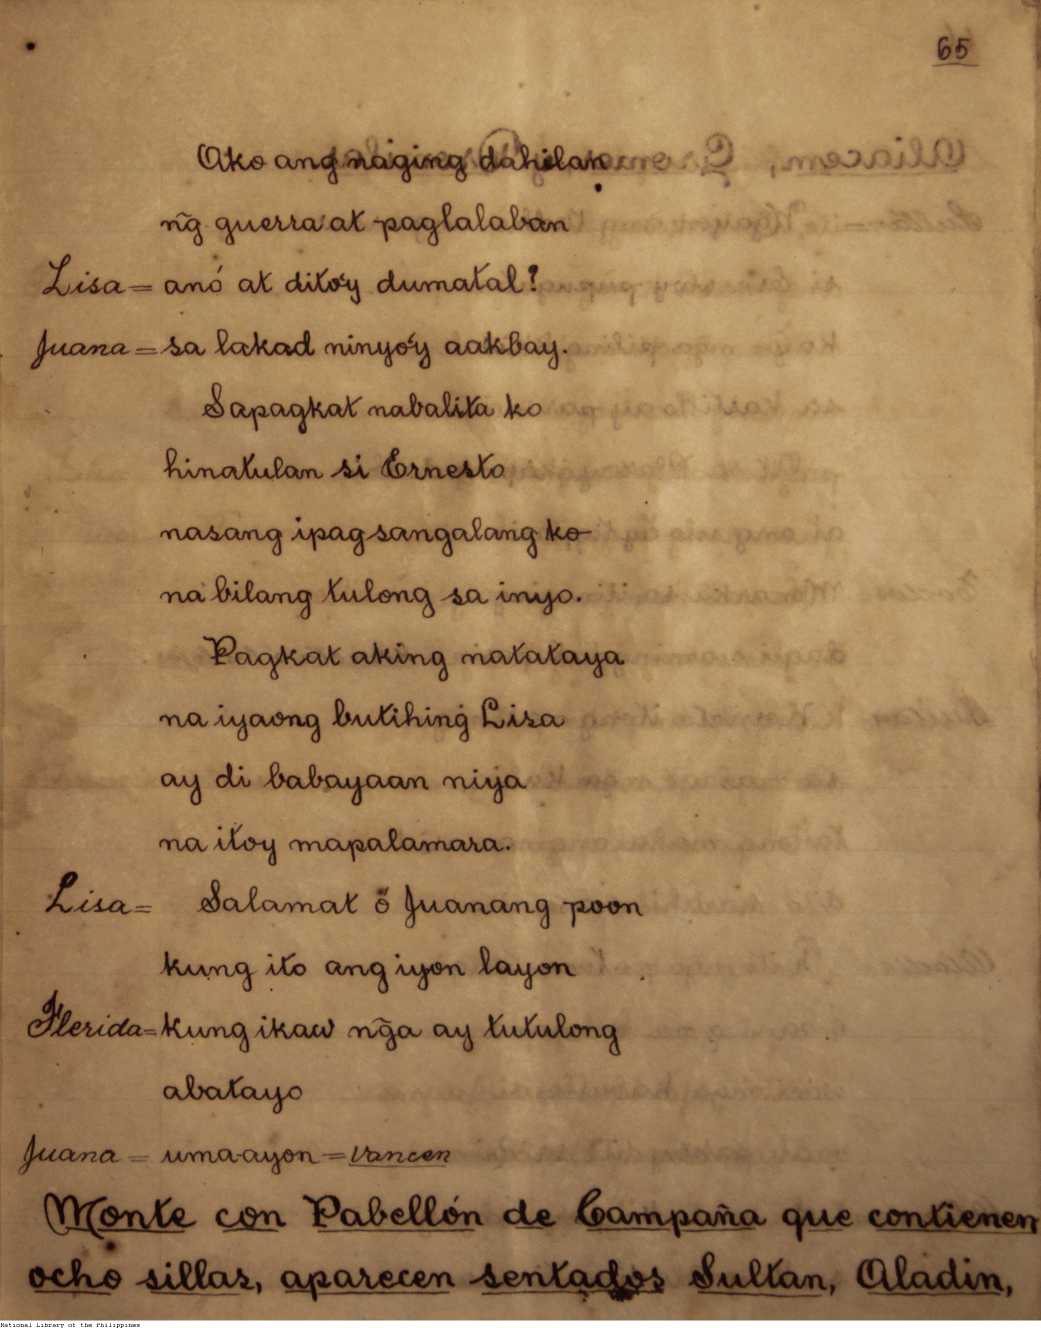 65
Ako ang naging dahilan
ng̃ guerra at paglalaban
Lisa = anó at dito'y dumatal?
Juana = sa lakad ninyo'y aakbay.
Sapagkat nabalita ko
hinatulan si Ernesto
nasang ipagsangalang ko
na bilang tulong sa inyo.
Pagkat aking natataya
na iyaong butihing Lisa
ay di babayaan niya
na itoy mapalamara.
Lisa = Salamat ő Juanang poon
kung ito ang iyon layon
Florida = kung ikaw ng̃a ay tutulong
abatayo
Juana = uma-ayon = Vancen
Monte con Pabellón de Campaña que contienen
ocho sillas, aparecen sentados Sultan, Aladin,
National Library of the Philippines